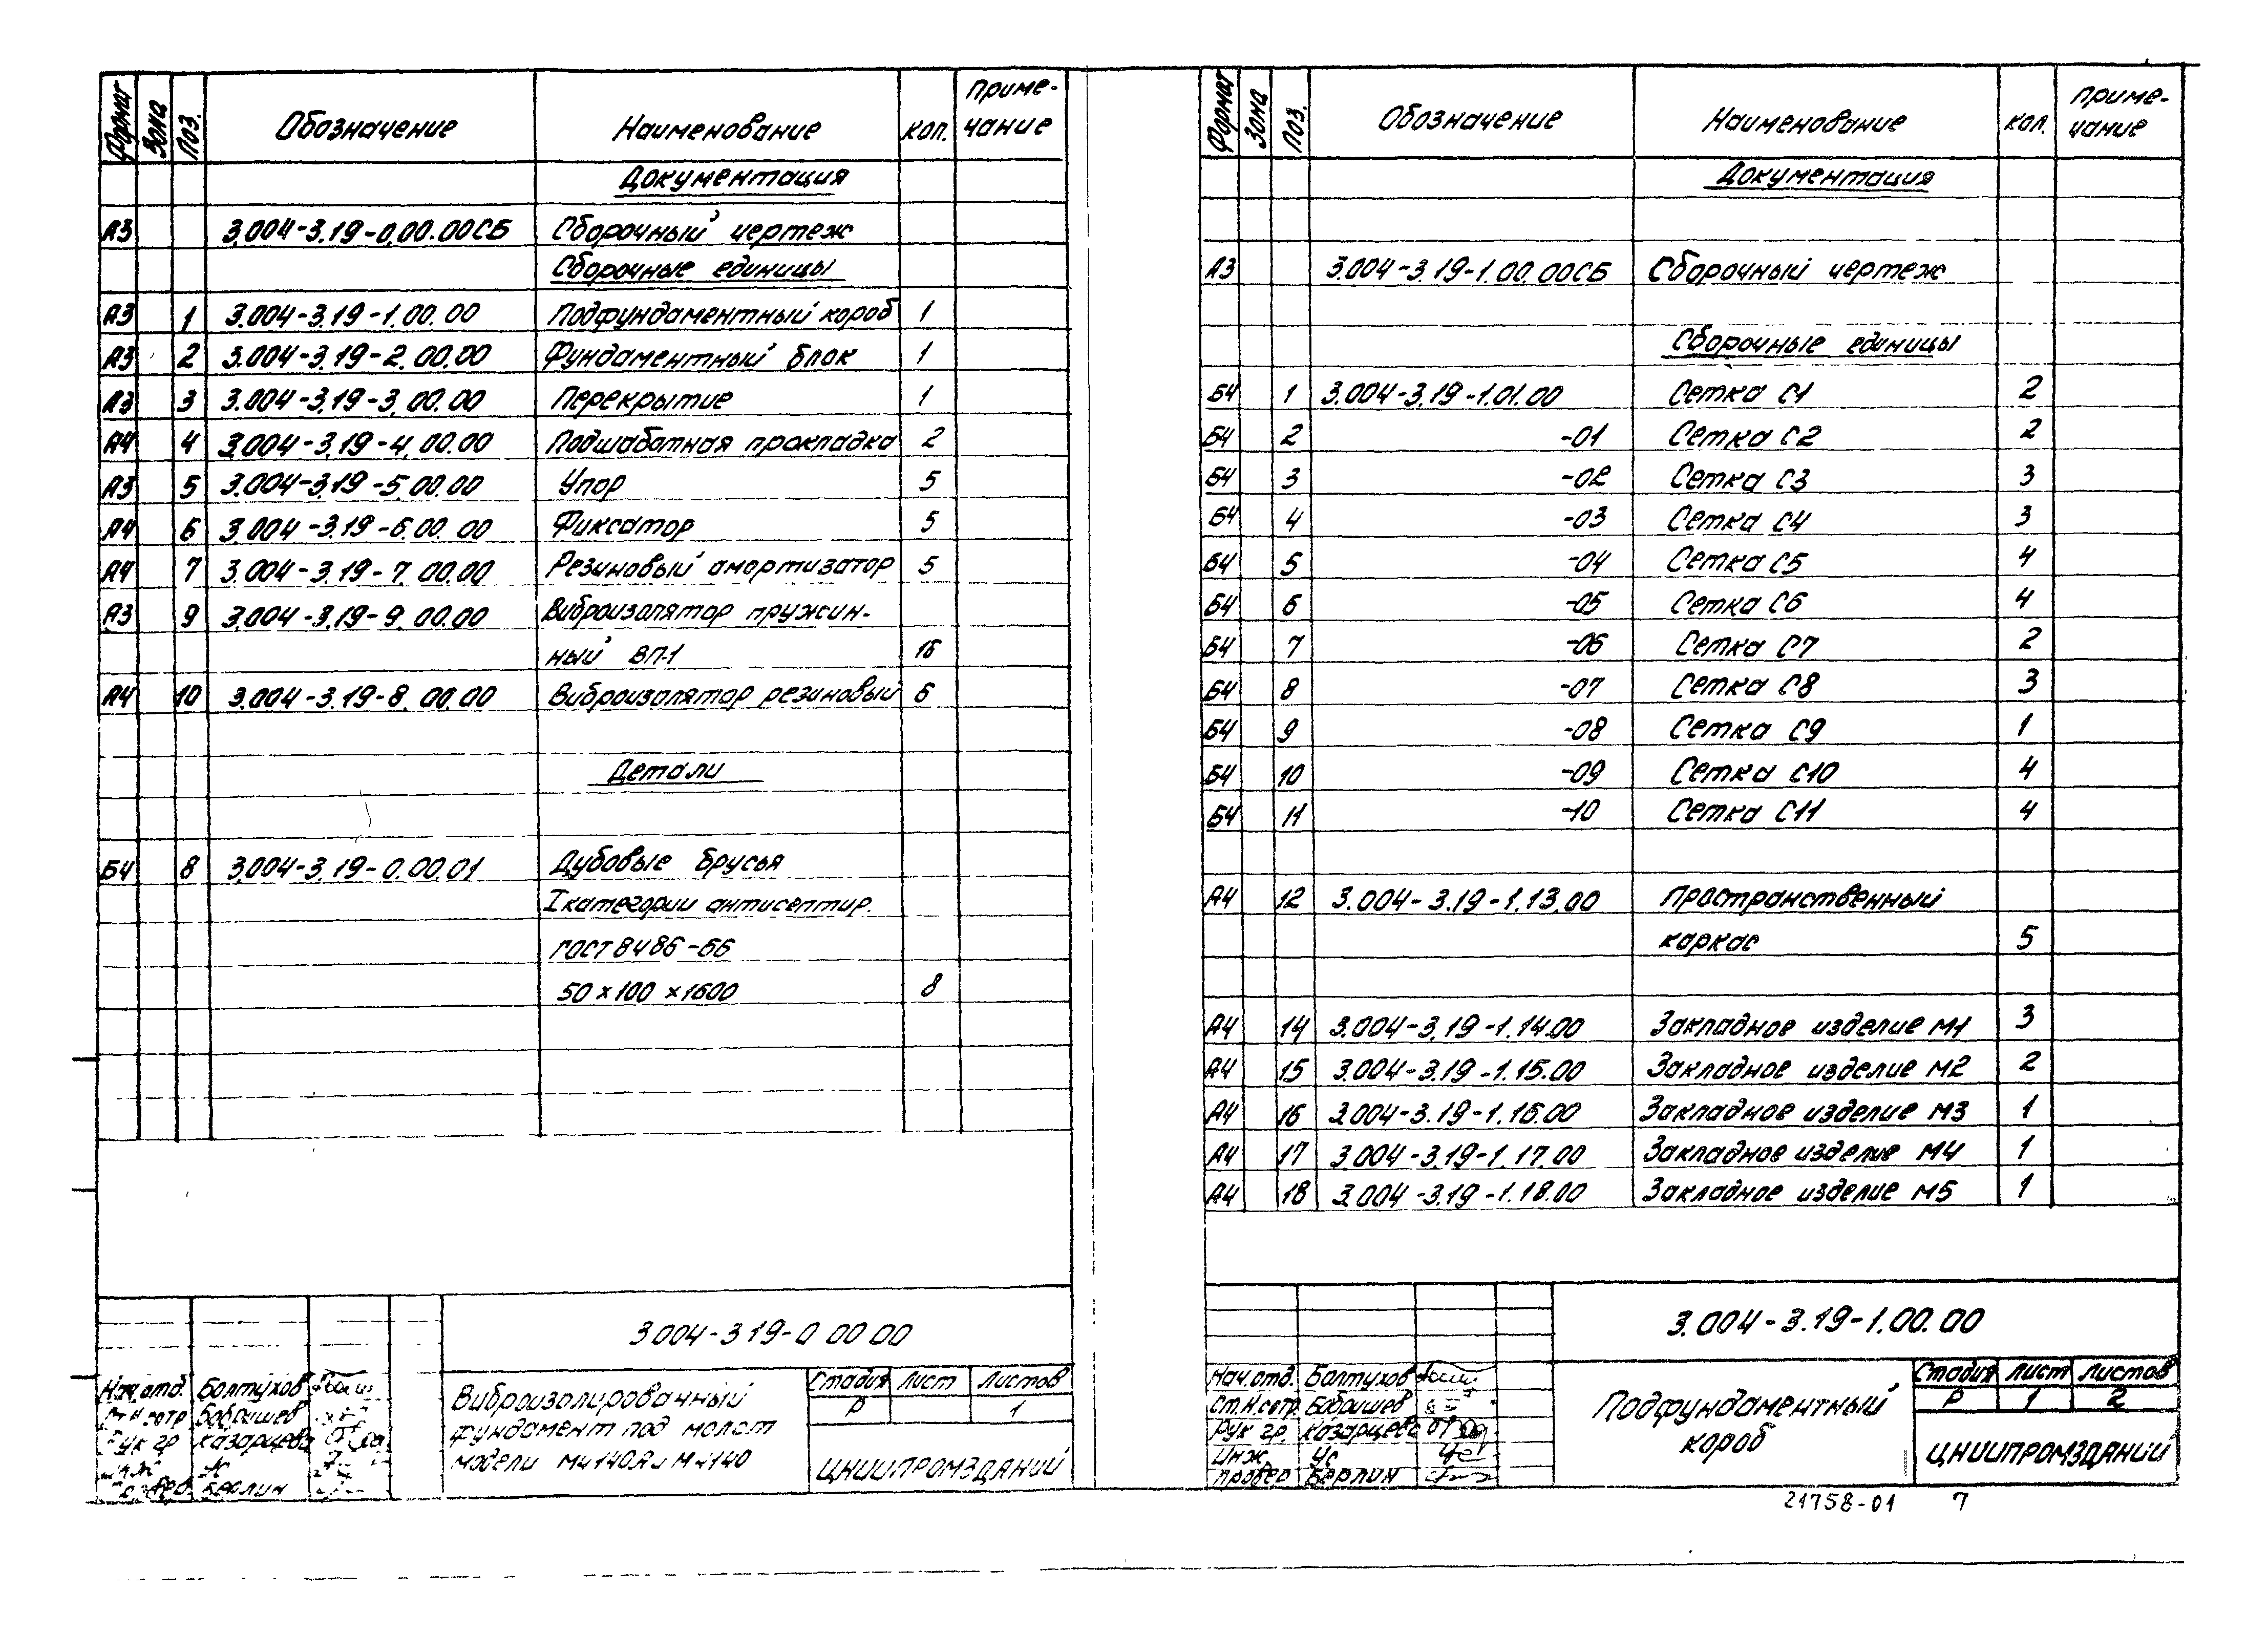 Формат Зона Поз. Обозначение Наименование Кол. Приме-
чание
Документация
А3 3.004-3.19-0.00.00СБ Сборочный чертеж
Сборочные единицы
А3 1 3.004-3.19-1.00.00 Подфундаментный короб 1
А3 2 3.004-3.19-2.00.00 Фундаментный блок 1
А3 3 3.004-3.19-3.00.00 Перекрытие 1
А4 4 3.004-3.19-4.00.00 Подшаботная прокладка 2
А3 5 3.004-3.19-5.00.00 Упор 5
А4 6 3.004-3.19-6.00.00 Фиксатор 5
А4 7 3.004-3.19-7.00.00 Резиновый амортизатор 5
А3 9 3.004-3.19-9.00.00 Виброизолятор пружин-
ный ВП-1 16
А4 10 3.004-3.19-8.00.00 Виброизолятор резиновый 6
Детали
Б4 8 3.004-3.19-0.00.01 Дубовые брусья
I категории антисептир.
ГОСТ 8486-66
50×100×1600 8
3.004-3.19-0.00.00
Нач.отд. Болтухов
Ст.н.сотр Бабришев
Рук гр Казарцева
Ус
Берлин
Виброизолированный
фундамент под молот
модели
Стадия Лист Листов
Р 1
ЦНИИПРОМЗДАНИЙ
Формат Зона Поз. Обозначение Наименование Кол. Приме-
чание
Документация
А3 3.004-3.19-1.00.00СБ Сборочный чертеж
Сборочные единицы
Б4 1 3.004-3.19-1.01.00 Сетка С1 2
Б4 2 -01 Сетка С2 2
Б4 3 -02 Сетка С3 3
Б4 4 -03 Сетка С4 3
Б4 5 -04 Сетка С5 4
Б4 6 -05 Сетка С6 4
Б4 7 -06 Сетка С7 2
Б4 8 -07 Сетка С8 3
Б4 9 -08 Сетка С9 1
Б4 10 -09 Сетка С10 4
Б4 11 -10 Сетка С11 4
А4 12 3.004-3.19-1.13.00 Пространственный
каркас 5
А4 14 3.004-3.19-1.14.00 Закладное изделие М1 3
А4 15 3.004-3.19-1.15.00 Закладное изделие М2 2
А4 16 3.004-3.19-1.16.00 Закладное изделие М3 1
А4 17 3.004-3.19-1.17.00 Закладное изделие М4 1
А4 18 3.004-3.19-1.18.00 Закладное изделие М5 1
3.004-3.19-1.00.00
Нач.отд. Болтухов
Ст.н.сотр. Бабришев
Рук гр. Казарцева
Инж. Ус
Провер Берлин
Подфундаментный
короб
Стадия Лист Листов
Р 1 2
ЦНИИПРОМЗДАНИЙ
21758-01 7